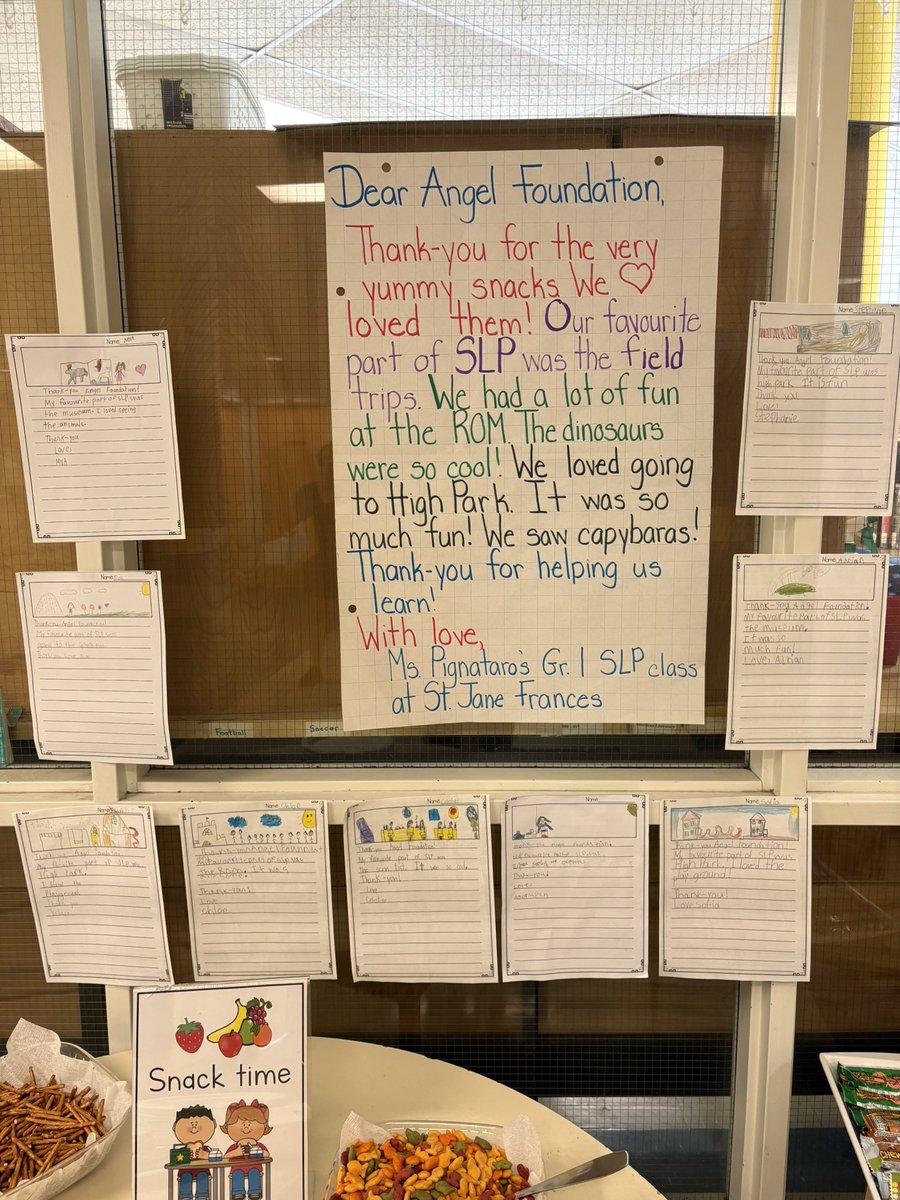 Dear Angel Foundation,
Thank-you for the very
yummy snacks. We ♡
loved them! Our favourite
part of SLP was the field
trips. We had a lot of fun
at the ROM. The dinosaurs
were so cool! We loved going
to High Park. It was so
much fun! We saw capybaras!
Thank-you for helping us
learn!
With love,
Ms. Pignataro's Gr. 1 SLP class
at St. Jane Frances
Name
Thank-you Angel Foundation!
My favourite part of SLP was
the museum. I loved seeing
the animals.
Thank-you
Love,
Mya
Name Stephanie
Thank you Angel Foundation!
My favourite part of SLP was
high park. It is fun
Thank you
Love,
Stephanie
Name
Thank-you Angel Foundation!
My favourite part of SLP was
going to the
Name Adrian
Thank-you Angel Foundation!
My favourite part of SLP was
the museum.
It was so
much fun!
Love, Adrian
Football
Soccer
Name
High Park.
Name Chloe
Thank-you
Love
Chloe
Name
My favourite part of SLP was
Thank-you!
Love
Name
Thank-you!
Love
Name Sofia
Thank-you Angel Foundation!
My favourite part of SLP was
High Park. I loved the
play ground!
Thank-you!
Love Sofia
Snack time